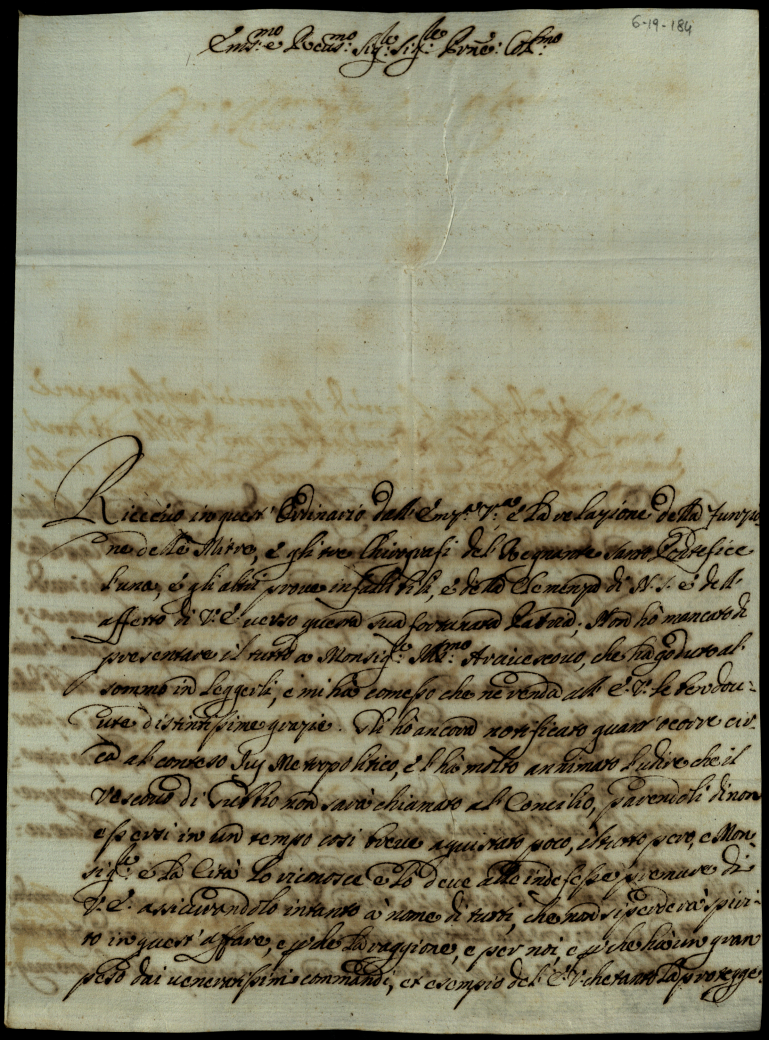 6-19-184
Em:mo e Reu:mo Sig:re Sig:re Prne: Col:mo
Riceuo in quest' Ordinario dall' Em:za V:ra è la relazione della Funzio
ne delle Mitre, è gli tre Chirografi del Regnante Santo Pontefice
l'una, è gli altri proue infallibili, è della Clemenza di N: S: è dell'
affetto di V: E: uerso questa sua fortunata Patria; Non hò mancato di
presentare il tutto a Monsig:re Ill:mo Arciuescouo, che hà goduto al
sommo in leggerli, è mi hà comesso che ne renda all' E: V: le ben dou-
ute distintissime grazie. Gli hò ancora notificato quant' ocorre cir-
ca al conteso Jus Metropolitico, è l' hà molto annimato l'udire che il
Vescouo di Gubbio non sarà chiamato al Concilio, parendoli di non
essersi in un tempo così breue aquistato poco, il tutto però, e Mon-
sig:re è la Città lo riconosce è lo deue alle indefesse premure di
V: E: assicurandolo intanto à nome di tutti, che non si perderà spiri-
to in quest' affare, e p che la raggione, e per noi, e p che hà un gran
peso dai ueneratissimi commandi, et esempio del' E: V: che tanto la protegge: